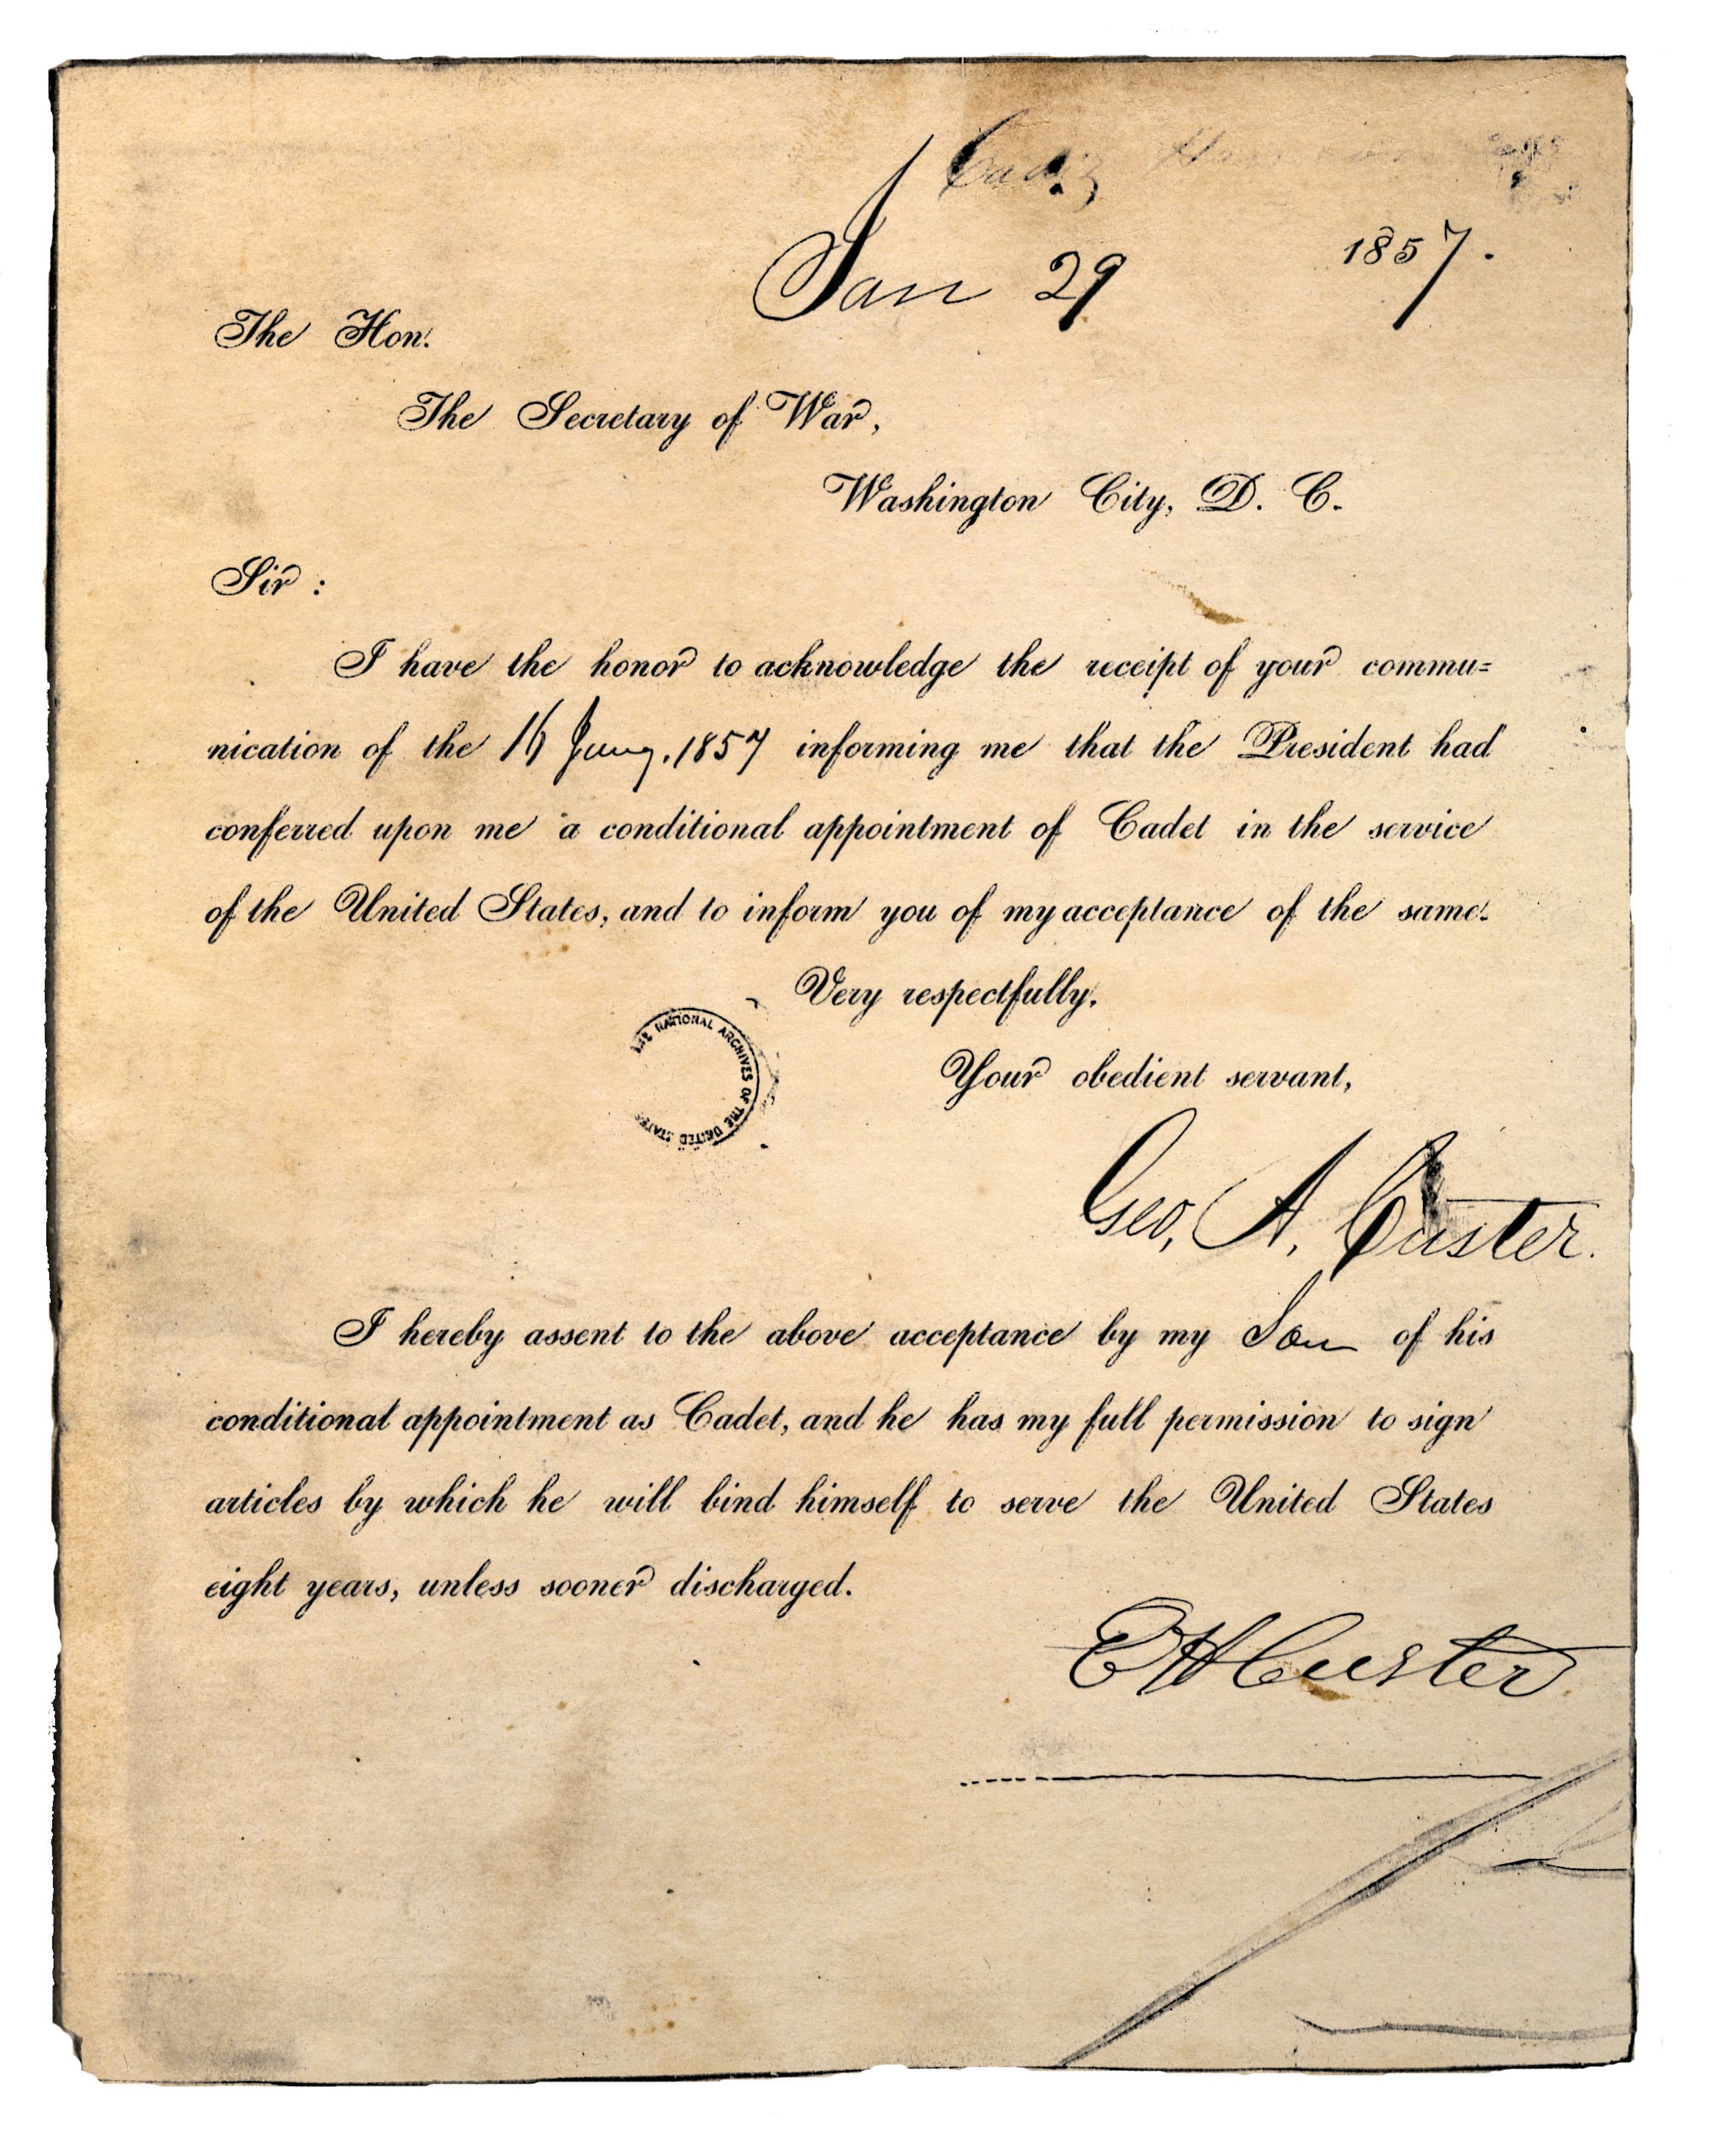 Cadiz
Jan 29 1857.
The Hon.
The Secretary of War,
Washington City, D. C.
Sir :
I have the honor to acknowledge the receipt of your commu=
nication of the 1857 informing me that the President had
conferred upon me a conditional appointment of Cadet in the service
of the United States, and to inform you of my acceptance of the same.
Very respectfully,
THE NATIONAL ARCHIVES OF THE UNITED STATES
Your obedient servant,
Geo, A. Custer.
I hereby assent to the above acceptance by my Son of his
conditional appointment as Cadet, and he has my full permission to sign
articles by which he will bind himself to serve the United States
eight years, unless sooner discharged.
E H Custer